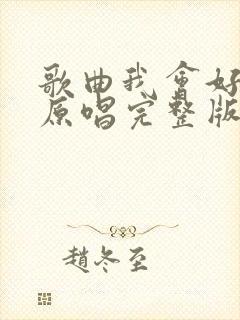 歌曲我会好
原唱完整版
趙冬至